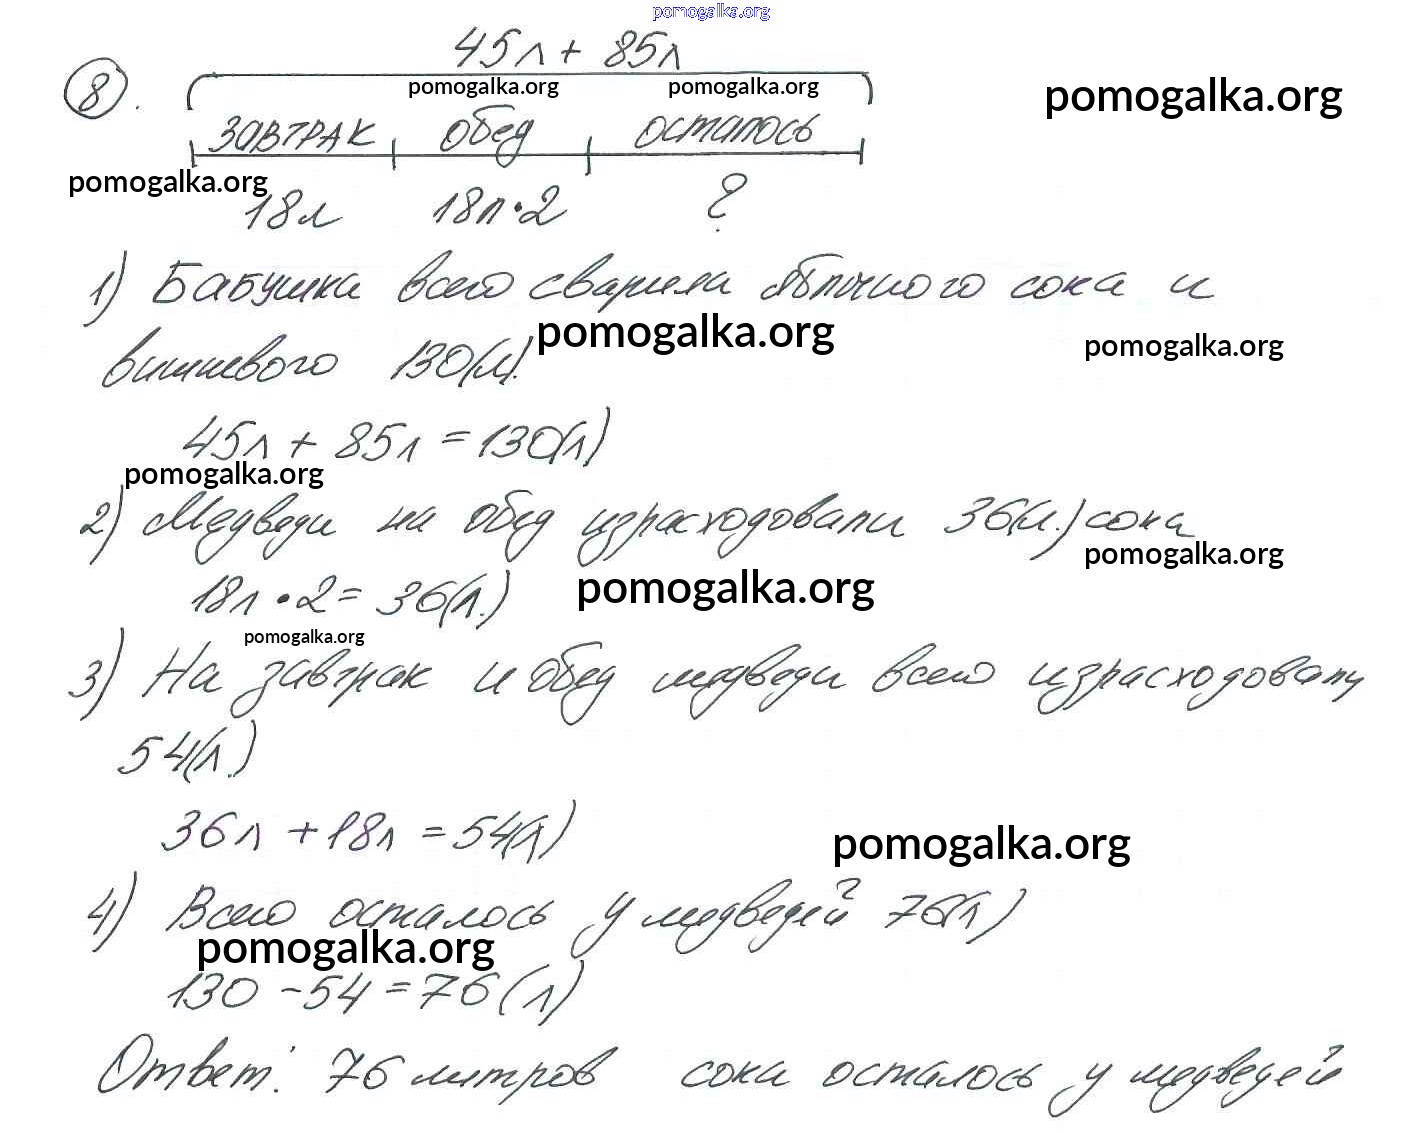 pomogalka.org
45л + 85л
8.
pomogalka.org pomogalka.org
pomogalka.org
завтрак обед осталось
pomogalka.org
18л 18л·2 ?
1) Бабушка всего сварила яблочного сока и
вишневого 130(л).
pomogalka.org
pomogalka.org
45л + 85л = 130(л)
pomogalka.org
2) Медведи на обед израсходовали 36(л.) сока
pomogalka.org
18л · 2 = 36(л.)
pomogalka.org
pomogalka.org
3) На завтрак и обед медведи всего израсходовали
54(л.)
36л + 18л = 54(л)
pomogalka.org
4) Всего осталось у медведей 76(л)
pomogalka.org
130 - 54 = 76 (л)
Ответ: 76 литров сока осталось у медведей